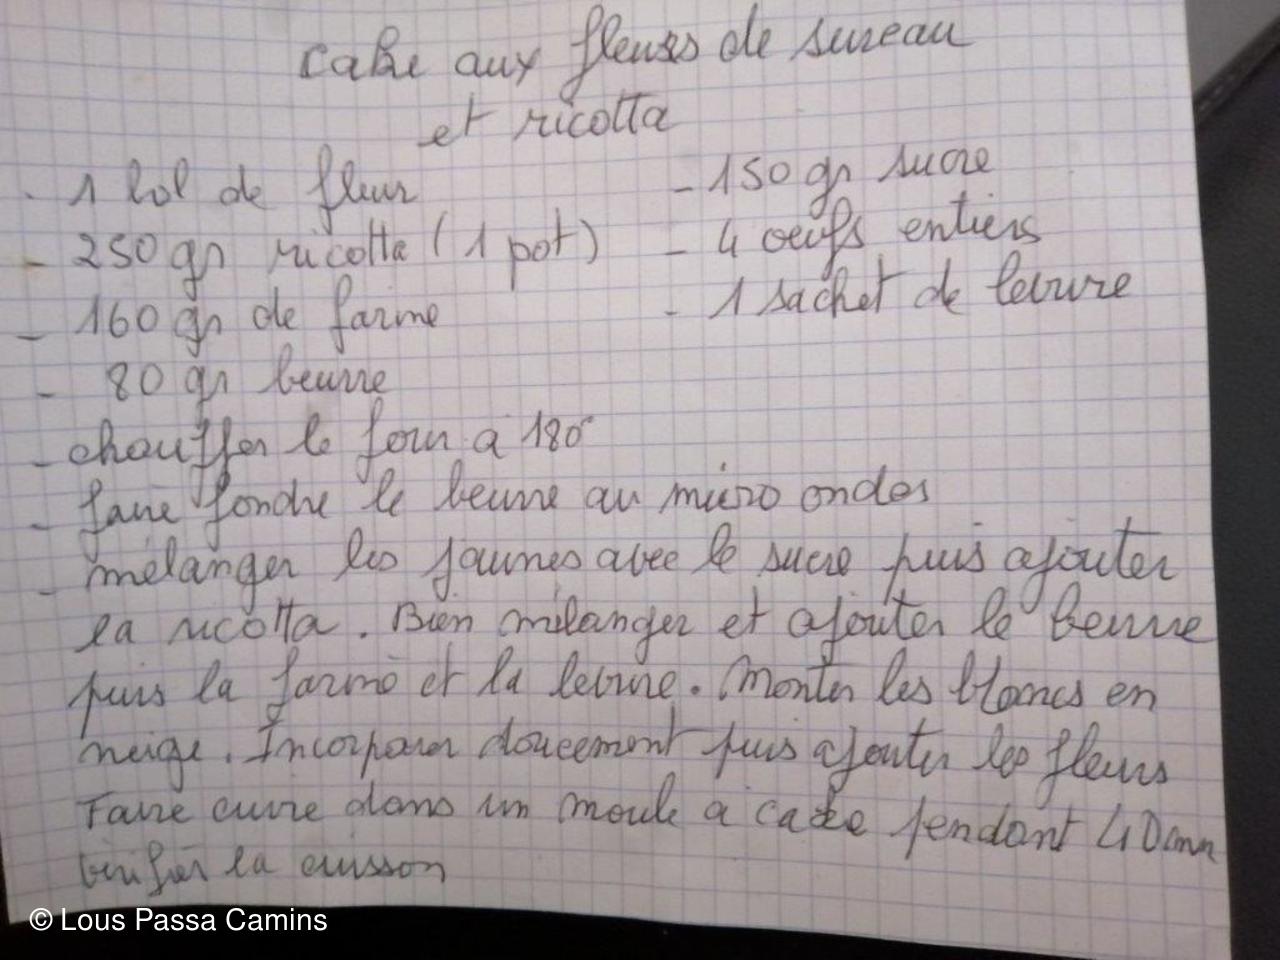 cake aux fleurs de sureau
et ricotta
- 1 bol de fleur
- 250 gr ricotta (1 pot)
- 160 gr de farine
- 80 gr beurre
- 150 gr sucre
- 4 oeufs entiers
- 1 sachet de levure
- chauffer le four a 180°
- faire fondre le beurre au micro ondes
- mélanger les jaunes avec le sucre puis ajouter
la ricotta. Bien mélanger et ajouter le beurre
puis la farine et la levure. Monter les blancs en
neige. Incorporer doucement puis ajouter les fleurs
Faire cuire dans un moule a cake pendant 40 mn
vérifier la cuisson
© Lous Passa Camins